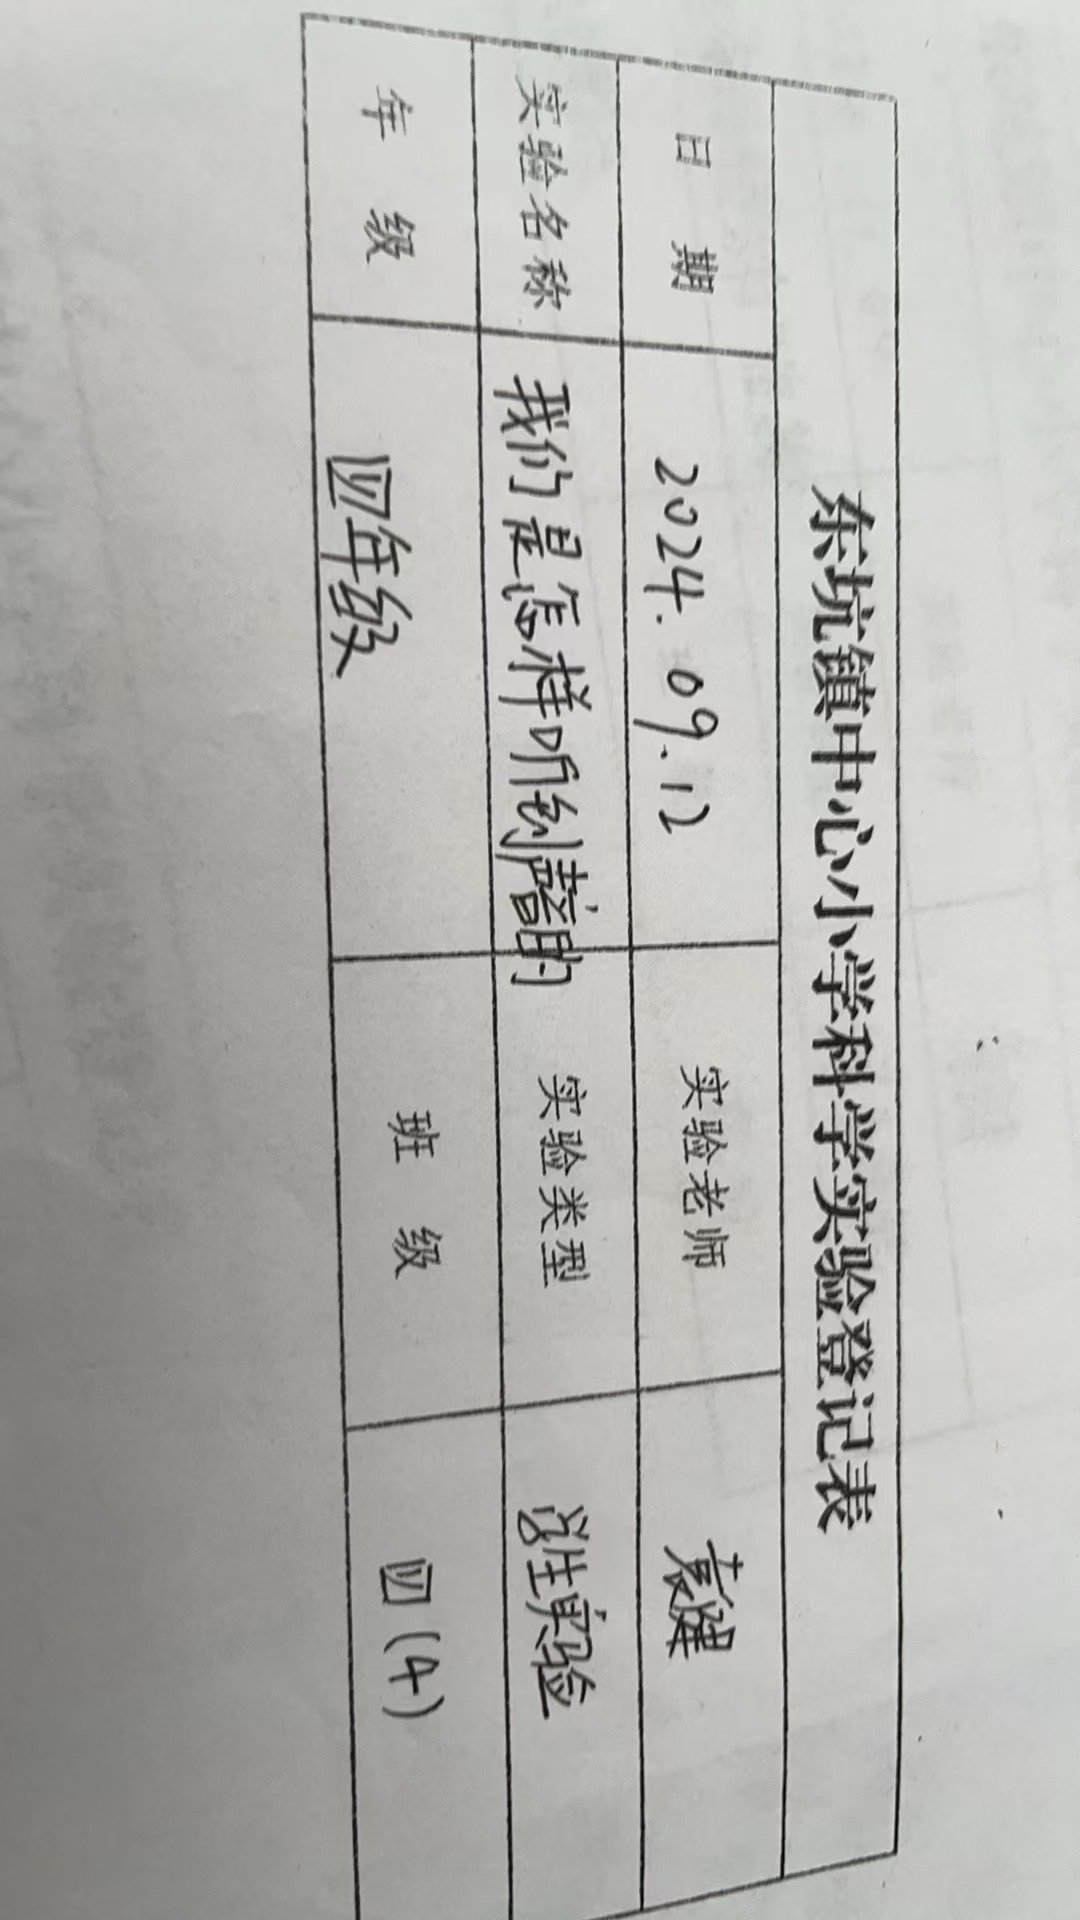 东坑镇中心小学科学实验登记表
日期 2024.09.12 实验老师 袁健
实验名称 我们是怎样听到声音的 实验类型 学生实验
年级 四年级 班级 四(4)